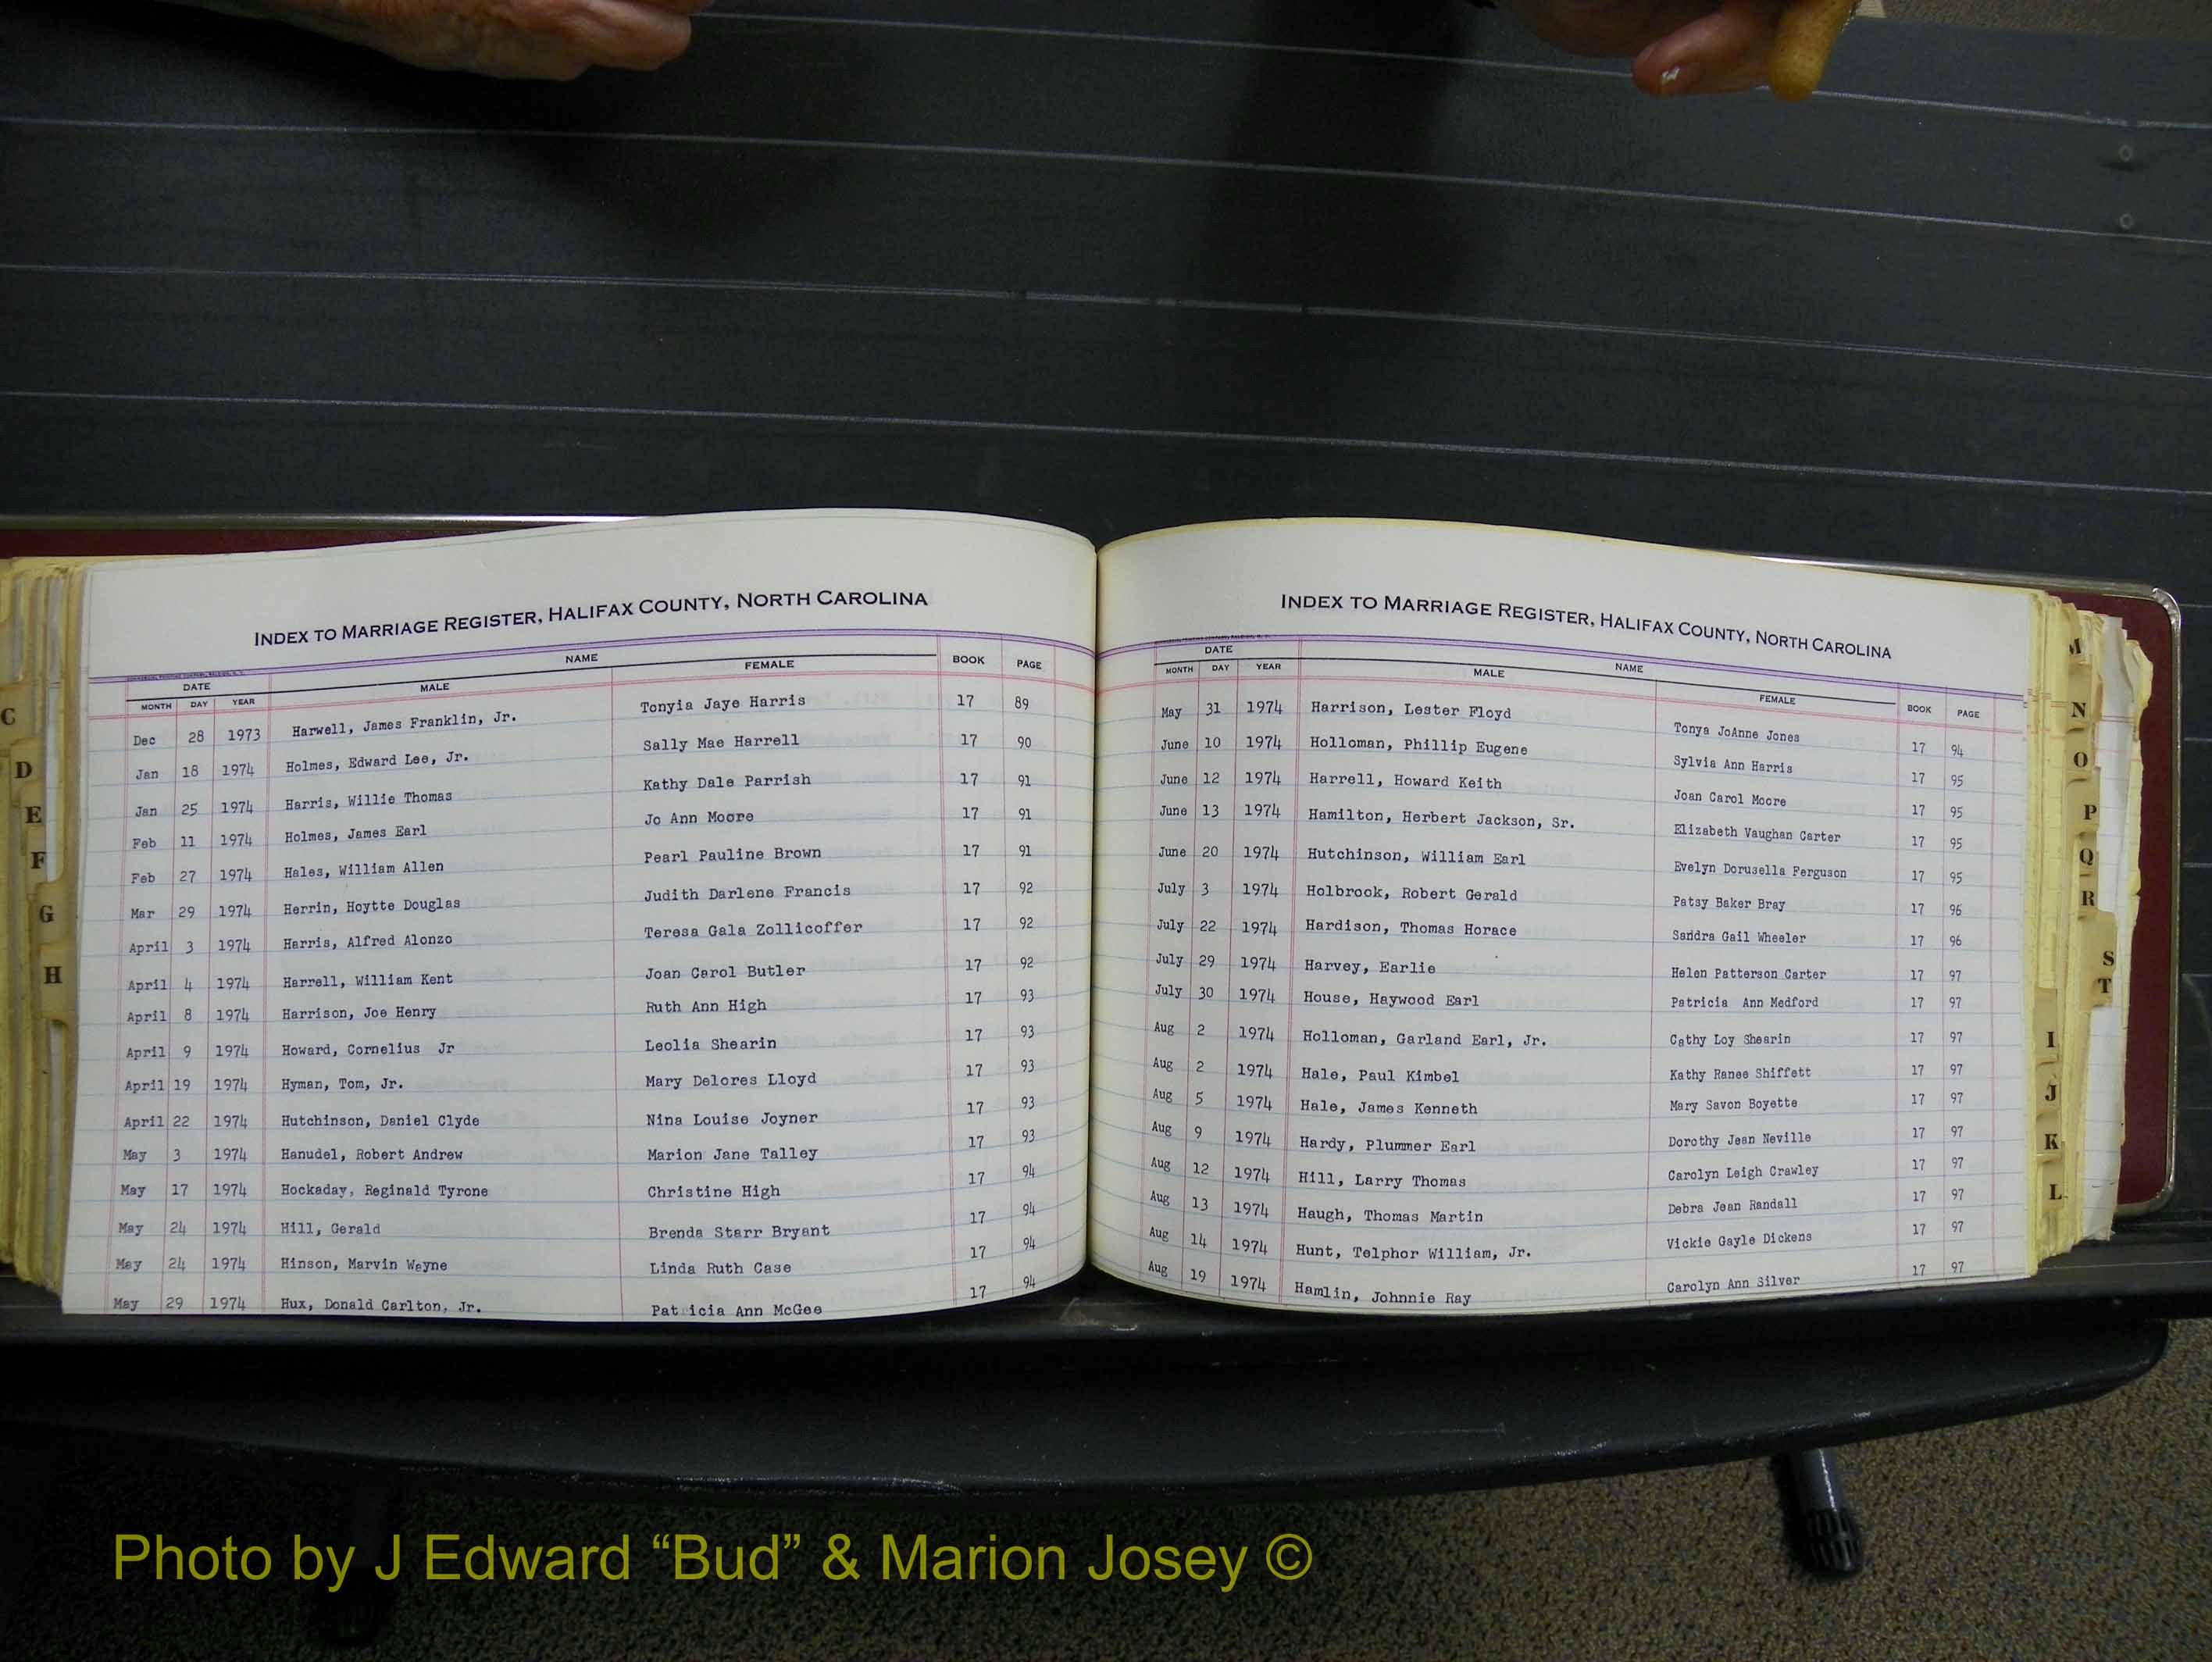 INDEX TO MARRIAGE REGISTER, HALIFAX COUNTY, NORTH CAROLINA
DATE NAME BOOK PAGE
MONTH DAY YEAR MALE FEMALE
Dec 28 1973 Harwell, James Franklin, Jr. Tonyia Jaye Harris 17 89
Jan 18 1974 Holmes, Edward Lee, Jr. Sally Mae Harrell 17 90
Jan 25 1974 Harris, Willie Thomas Kathy Dale Parrish 17 91
Feb 11 1974 Holmes, James Earl Jo Ann Moore 17 91
Feb 27 1974 Hales, William Allen Pearl Pauline Brown 17 91
Mar 29 1974 Herrin, Hoytte Douglas Judith Darlene Francis 17 92
April 3 1974 Harris, Alfred Alonzo Teresa Gala Zollicoffer 17 92
April 4 1974 Harrell, William Kent Joan Carol Butler 17 92
April 8 1974 Harrison, Joe Henry Ruth Ann High 17 93
April 9 1974 Howard, Cornelius Jr Leolia Shearin 17 93
April 19 1974 Hyman, Tom, Jr. Mary Delores Lloyd 17 93
April 22 1974 Hutchinson, Daniel Clyde Nina Louise Joyner 17 93
May 3 1974 Hanudel, Robert Andrew Marion Jane Talley 17 93
May 17 1974 Hockaday, Reginald Tyrone Christine High 17 94
May 24 1974 Hill, Gerald Brenda Starr Bryant 17 94
May 24 1974 Hinson, Marvin Wayne Linda Ruth Case 17 94
May 29 1974 Hux, Donald Carlton, Jr. Pat icia Ann McGee 17 94
INDEX TO MARRIAGE REGISTER, HALIFAX COUNTY, NORTH CAROLINA
DATE NAME
MONTH DAY YEAR MALE FEMALE BOOK PAGE
May 31 1974 Harrison, Lester Floyd Tonya JoAnne Jones 17 94
June 10 1974 Holloman, Phillip Eugene Sylvia Ann Harris 17 95
June 12 1974 Harrell, Howard Keith Joan Carol Moore 17 95
June 13 1974 Hamilton, Herbert Jackson, Sr. Elizabeth Vaughan Carter 17 95
June 20 1974 Hutchinson, William Earl Evelyn Dorusella Ferguson 17 95
July 3 1974 Holbrook, Robert Gerald Patsy Baker Bray 17 96
July 22 1974 Hardison, Thomas Horace Sandra Gail Wheeler 17 96
July 29 1974 Harvey, Earlie Helen Patterson Carter 17 97
July 30 1974 House, Haywood Earl Patricia Ann Medford 17 97
Aug 2 1974 Holloman, Garland Earl, Jr. Cathy Loy Shearin 17 97
Aug 2 1974 Hale, Paul Kimbel Kathy Ranee Shiffett 17 97
Aug 5 1974 Hale, James Kenneth Mary Savon Boyette 17 97
Aug 9 1974 Hardy, Plummer Earl Dorothy Jean Neville 17 97
Aug 12 1974 Hill, Larry Thomas Carolyn Leigh Crawley 17 97
Aug 13 1974 Haugh, Thomas Martin Debra Jean Randall 17 97
Aug 14 1974 Hunt, Telphor William, Jr. Vickie Gayle Dickens 17 97
Aug 19 1974 Hamlin, Johnnie Ray Carolyn Ann Silver 17 97
C
D
E
F
G
H
M
N
O
P
Q
R
S
T
I
J
K
L
Photo by J Edward “Bud” & Marion Josey ©